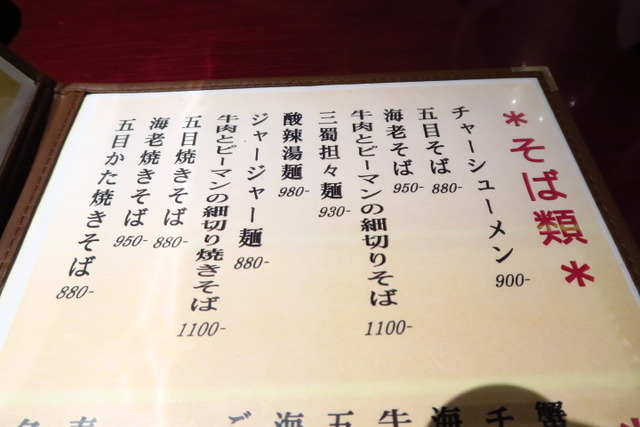 *そば類*
チャーシューメン 900-
五目そば 880-
海老そば 950-
牛肉とピーマンの細切りそば 1100-
三蜀担々麺 930-
酸辣湯麺 980-
ジャージャー麺 880-
牛肉とピーマンの細切り焼きそば 1100-
五目焼きそば 880-
海老焼きそば 950-
五目かた焼きそば 880-
蟹
チ
海
牛
五
海